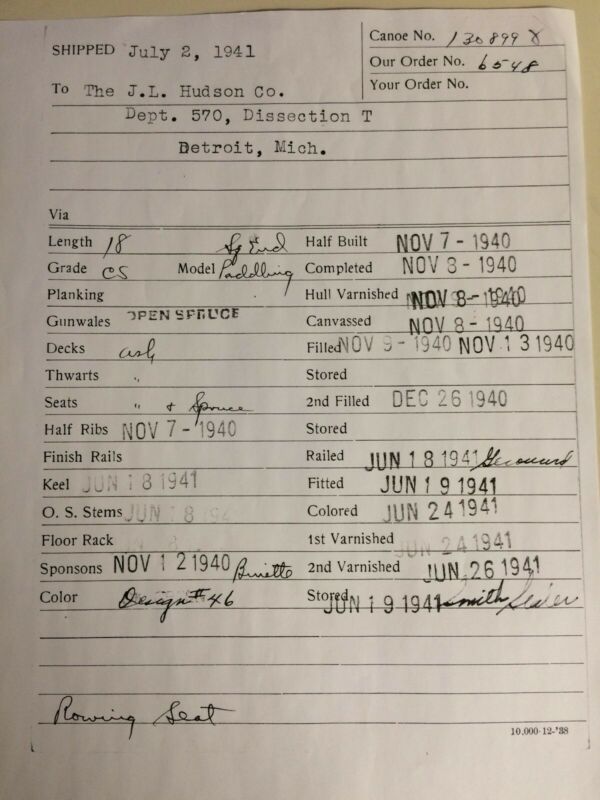 SHIPPED July 2, 1941
Canoe No. 130899 X
Our Order No. 6548
Your Order No.
To The J.L. Hudson Co.
Dept. 570, Dissection T
Detroit, Mich.
Via
Length 18 Sq End Half Built NOV 7 - 1940
Grade CS Model Paddling Completed NOV 8 - 1940
Planking Hull Varnished NOV 8 - 1940
Gunwales OPEN SPRUCE Canvassed NOV 8 - 1940
Decks ash Filled NOV 9 - 1940 NOV 13 1940
Thwarts " Stored
Seats " + Spruce 2nd Filled DEC 26 1940
Half Ribs NOV 7 - 1940 Stored
Finish Rails Railed JUN 18 1941
Keel JUN 18 1941 Fitted JUN 19 1941
O. S. Stems JUN 18 Colored JUN 24 1941
Floor Rack 1st Varnished JUN 24 1941
Sponsons NOV 12 1940 2nd Varnished JUN 26 1941
Color Design #46 Stored JUN 19 1941 Smith
Rowing Seat
10,000-12-'38